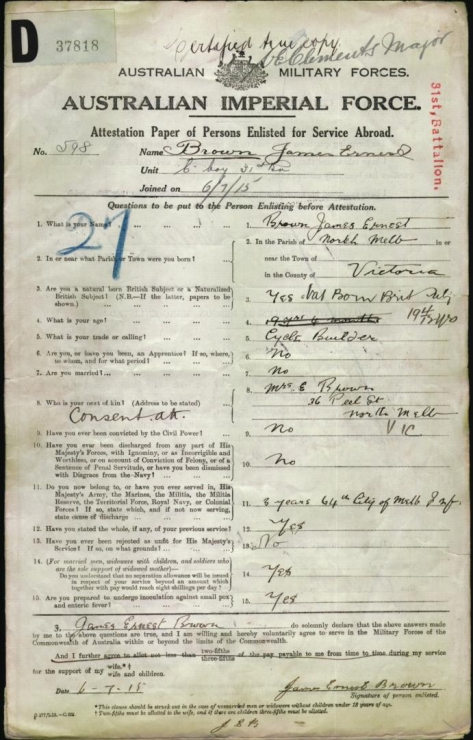 D
37818
Certified true copy
Clements Major
AUSTRALIAN MILITARY FORCES.
AUSTRALIAN IMPERIAL FORCE.
31st, Battalion.
Attestation Paper of Persons Enlisted for Service Abroad.
No. 598 Name Brown James Ernest
Unit C Coy 31st Bn
Joined on 6/7/15
Questions to be put to the Person Enlisting before Attestation.
27
1. What is your Name? ... 1. Brown James Ernest
2. In or near what Parish or Town were you born? ... 2. In the Parish of North Melb in or
near the Town of
in the County of Victoria
3. Are you a natural born British Subject or a Naturalized
British Subject? (N.B.—If the latter, papers to be
shown.) ... 3. Yes Nat Born Brit Subj
4. What is your age? ... 4.
5. What is your trade or calling? ... 5. Cycle Builder
6. Are you, or have you been, an Apprentice? If so, where,
to whom, and for what period? ... 6. No
7. Are you married? ... 7. No
8. Who is your next of kin? (Address to be stated) 8. Mrs E Brown
36 Peel St
North Melb
VIC
Consent att.
9. Have you ever been convicted by the Civil Power? 9. No
10. Have you ever been discharged from any part of His
Majesty's Forces, with Ignominy, or as Incorrigible and
Worthless, or on account of Conviction of Felony, or of a
Sentence of Penal Servitude, or have you been dismissed
with Disgrace from the Navy? ... 10. No
11. Do you now belong to, or have you ever served in, His
Majesty's Army, the Marines, the Militia, the Militia
Reserve, the Territorial Force, Royal Navy, or Colonial
Forces? If so, state which, and if not now serving,
state cause of discharge 11. 3 years 64th City of Melb Inf
12. Have you stated the whole, if any, of your previous service? 12. Yes
13. Have you ever been rejected as unfit for His Majesty's
Service? If so, on what grounds? 13. No
14. (For married men, widowers with children, and soldiers who
are the sole support of widowed mother)—
Do you understand that no separation allowance will be issued
in respect of your service beyond an amount which
together with pay would reach eight shillings per day? 14. Yes
15. Are you prepared to undergo inoculation against small pox
and enteric fever? 15. Yes
I, James Ernest Brown do solemnly declare that the above answers made
by me to the above questions are true, and I am willing and hereby voluntarily agree to serve in the Military Forces of the
Commonwealth of Australia within or beyond the limits of the Commonwealth.
And I further agree to allot not less than two-fifths three-fifths of the pay payable to me from time to time during my service
for the support of my wife.*† wife and children.
Date 6-7-15 James Ernest Brown
Signature of person enlisted.
*This clause should be struck out in the case of unmarried men or widowers without children under 18 years of age.
†Two-fifths must be allotted to the wife, and if there are children three-fifths must be allotted.
J E B